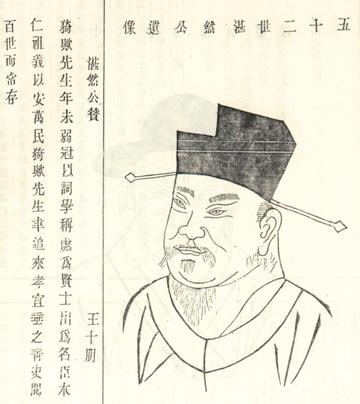 五十二世湛然公遺像
湛然公贊　王十朋
猗歟先生年未弱冠以詞學稱處為賢士出為名臣本
仁祖義以安萬民猗歟先生聿追來孝宜垂之青史閱
百世而常存